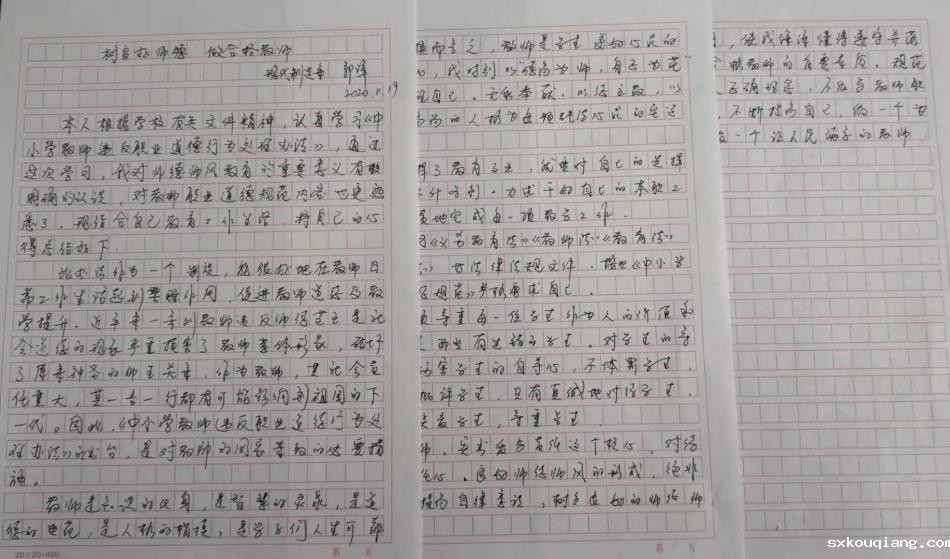 树良好师德 做合格教师
现代制造系 郭泽
2020.11.19
本人根据学校有关文件精神，认真学习《中
小学教师违反职业道德行为处理办法》，通过
这次学习，我对师德师风教育的重要意义有较
明确的认识，对教师职业道德规范内容也更熟
悉了。现结合自己教育工作生活，将自己的心
得总结如下
此办法作为一个制度，能很好地在教师日
常工作生活起到警醒作用，促进教师道德及教
学提升。近年来一系列教师违反师德甚至是社
会道德的现象严重损害了教师集体形象，破坏
了原来神圣的师生关系。作为教师，其社会责
任重大，其一言一行都有可能影响到祖国的下
一代。因此，《中小学教师违反职业道德行为处
理办法》的出台，是对教师的因需采取的必要措
施。
教师是知识的化身，是智慧的灵泉，是道
德的典范，是人格的楷模，是学子们人生可靠
20×20=400
第 页
换而言之，教师是学生美好心灵的
，我时刻以德高为师，身正为范
自己。无私奉献。以德立教，以
高尚的人格
择了教育事业，就要对自己的选择
计名利。力求干好自己的本职工
地完成每一项教学工作。
《义务教育法》《教师法》《教育法》
等法律法规文件。按照《中小学
规范》严格要求自己。
尊重每一位学生作为人的价值和
那些有过错的学生。对学生的
伤害学生的自尊心，不体罚学生
批评学生。只有真诚地对待学生
关爱学生，尊重学生
师，实书爱与责任这个核心，对待
心。良好师德师风的形成，绝非
提高自律意识，树立良好的师德师
第 页
，使我深深懂得爱学并落
格教师的首要素质。规范
正确理念。不做有教师职
，不断提高自己，做一个为
一个让人民满意的教师
第 页
sxkouqiang.com